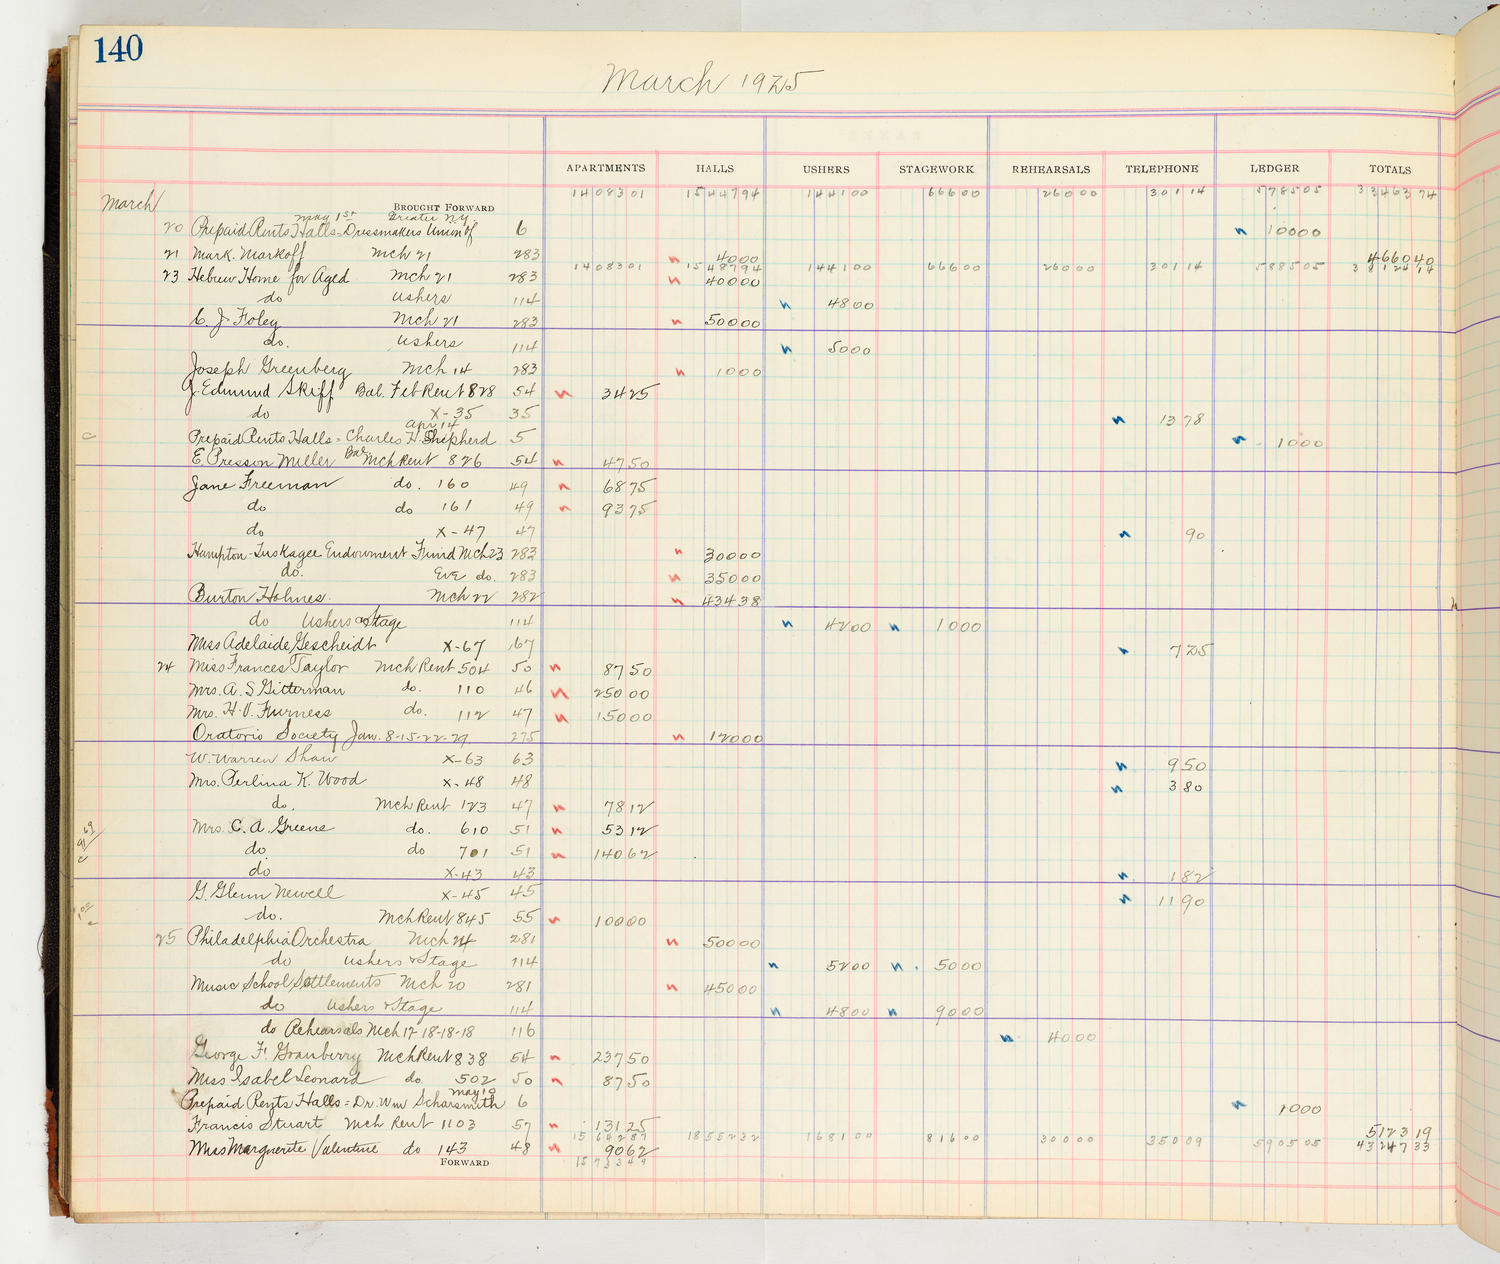 140
March 1925
APARTMENTS HALLS USHERS STAGEWORK REHEARSALS TELEPHONE LEDGER TOTALS
March BROUGHT FORWARD 1408301 1544794 144100 66600 26000 30114 578505 3346374
may 1st Greater N.Y.
20 Prepaid Rents Halls = Dressmakers Union of 6 10000
21 Mark. Markoff Mch 21 283 4000 466040
1408301 1548794 144100 66600 26000 30114 588505
23 Hebrew Home for Aged Mch 21 283 40000
do ushers 114 4800
C. J. Foley Mch 21 283 50000
do. ushers 114 5000
Joseph Greenberg Mch 14 283 1000
J. Edmund Skiff Bal. Feb Rent 828 54 3425
do X-35 35 1378
apr 14
Prepaid Rents Halls = Charles H. Shipherd 5 1000
E. Presson Miller Bal Mch Rent 826 54 4750
Jane Freeman do. 160 49 6875
do do 161 49 9375
do X-47 47 90
Hampton-Tuskagee Endowment Fund Mch 23 283 30000
do. Eve do. 283 35000
Burton Holmes. Mch 22 282 43438
do Ushers & Stage 114 4200 1000
Miss Adelaide Gescheidt X-67 67 725
24 Miss Frances Taylor Mch Rent 504 50 8750
Mrs. A. S Gitterman do. 110 46 25000
Mrs. H. V. Furness do. 112 47 15000
Oratorio Society Jan. 8-15-22-29 275 12000
W. Warren Shaw X-63 63 950
Mrs. Perlina K. Wood X-48 48 380
do. Mch Rent 123 47 7812
Mrs. C. A. Greene do. 610 51 5312
do. do 701 51 14062
do X-43 43 182
G. Glenn Newell X-45 45 1190
do. Mch Rent 845 55 10000
25 Philadelphia Orchestra Mch 24 281 50000
do ushers & Stage 114 5200 5000
Music School Settlements Mch 20 281 45000
do Ushers & Stage 114 4800 9000
do Rehearsals Mch 17-18-18-18 116 4000
George F. Granberry Mch Rent 838 54 23750
Miss Isabel Leonard do. 502 50 8750
may 10
Prepaid Rents Halls = Dr. Wm Scharsmith 6 1000
Francis Stuart Mch Rent 1103 57 13125 512319
1564287 1855232 168100 81600 30000 35009 590505 4324733
Miss Marguerite Valentine do 143 48 9062
FORWARD 1573349